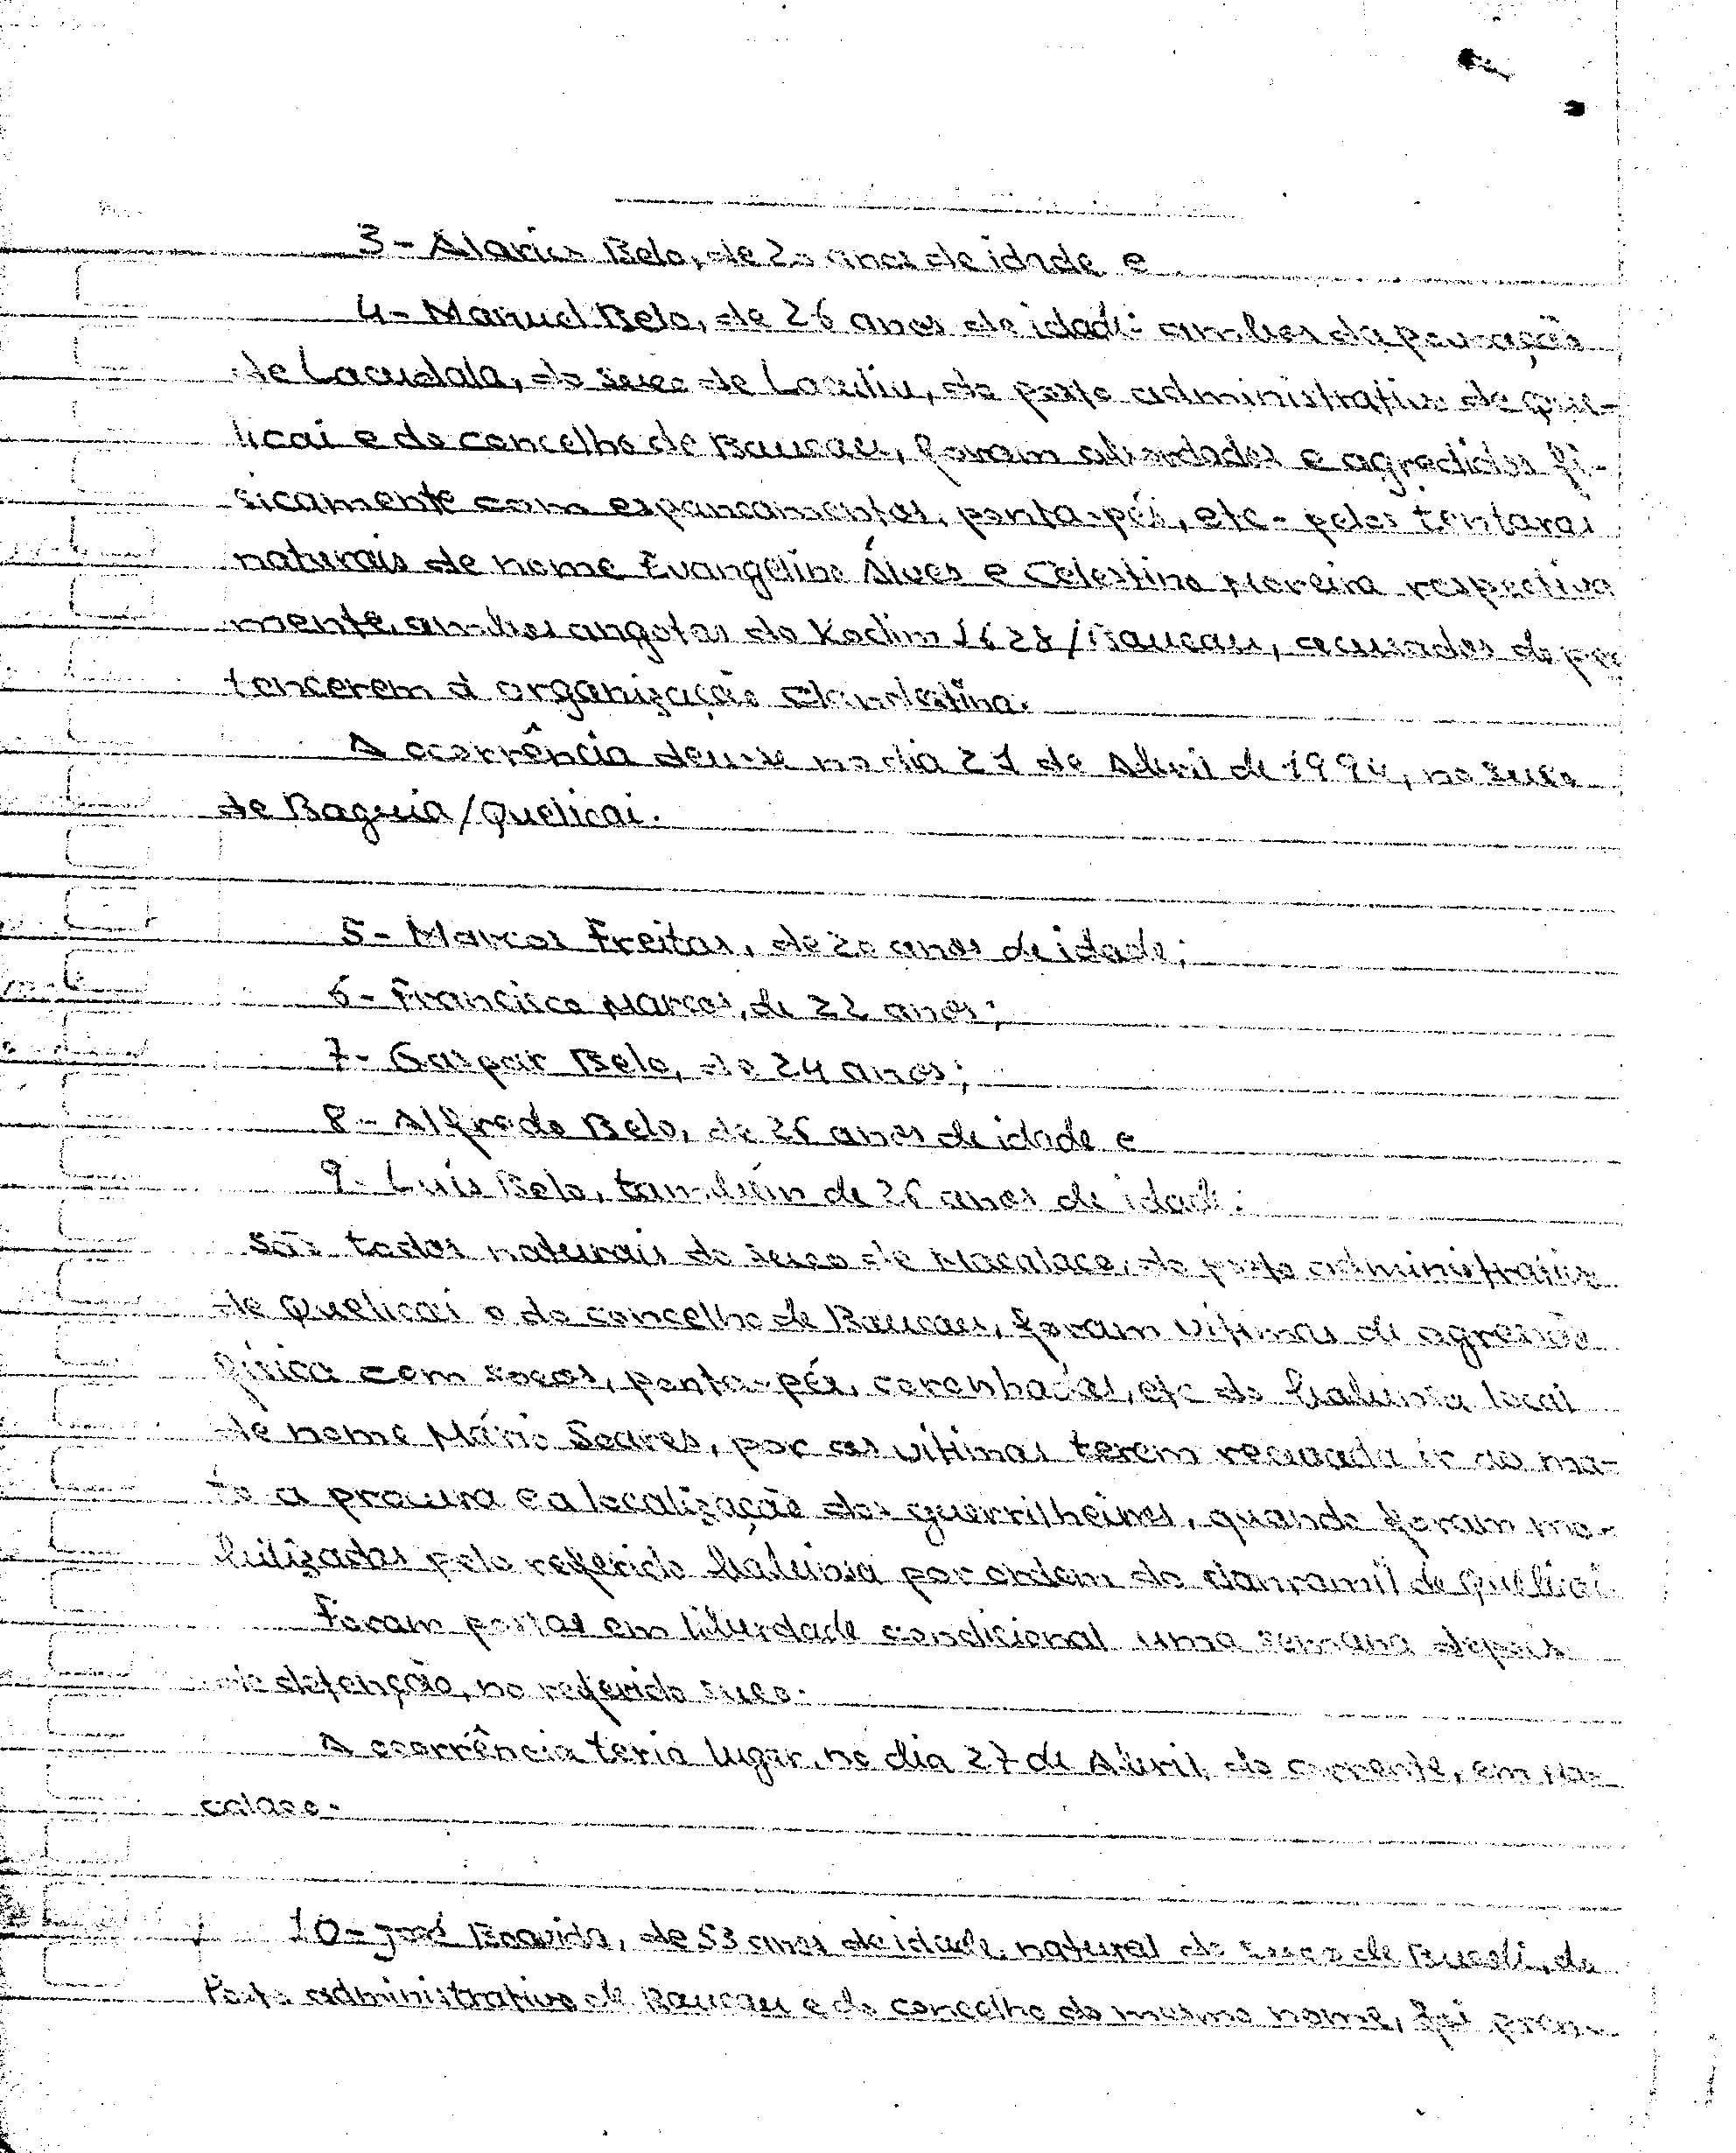 3- Alarico Belo, de 20 anos de idade e
4- Manuel Belo, de 26 anos de idade: ambos da povoação
de Lacudala, do suco de Laculiu, do posto administrativo de Que-
licai e do concelho de Baucau, foram abordados e agredidos fi-
sicamente com espancamentos, ponta-pés, etc- pelos tentaras
naturais de nome Evangelino Álves e Celestino Moreira respectiva
mente, ambos angotas do Kodim 1628/Baucau, acusados de per
tencerem à organização clandestina.
A ocorrência deu-se no dia 21 de Abril de 1994, no suco
de Baguia/Quelicai.
5- Marcos Freitas, de 20 anos de idade;
6- Francisco Marcos, de 22 anos;
7- Gaspar Belo, de 24 anos;
8- Alfredo Belo, de 26 anos de idade e
9- Luís Belo, também de 26 anos de idade:
São todos naturais do suco de Macalaco, do posto administrativo
de Quelicai e do concelho de Baucau, foram vítimas de agressão
física com socos, ponta-pés, coronhadas, etc do babinsa local
de nome Mário Soares, por as vítimas terem recusado ir ao ma-
to a procura e a localização dos guerrilheiros, quando foram mo-
bilizados pelo referido babinsa por ordem do danramil de Quelicai.
Foram postas em liberdade condicional uma semana depois
de detenção, no referido suco.
A ocorrência teria lugar, no dia 27 de Abril, do corrente, em Ma-
calaco.
10- José Boavida, de 53 anos de idade, natural do suco de Bucoli, do
Posto administrativo de Baucau e do concelho do mesmo nome, foi pren-